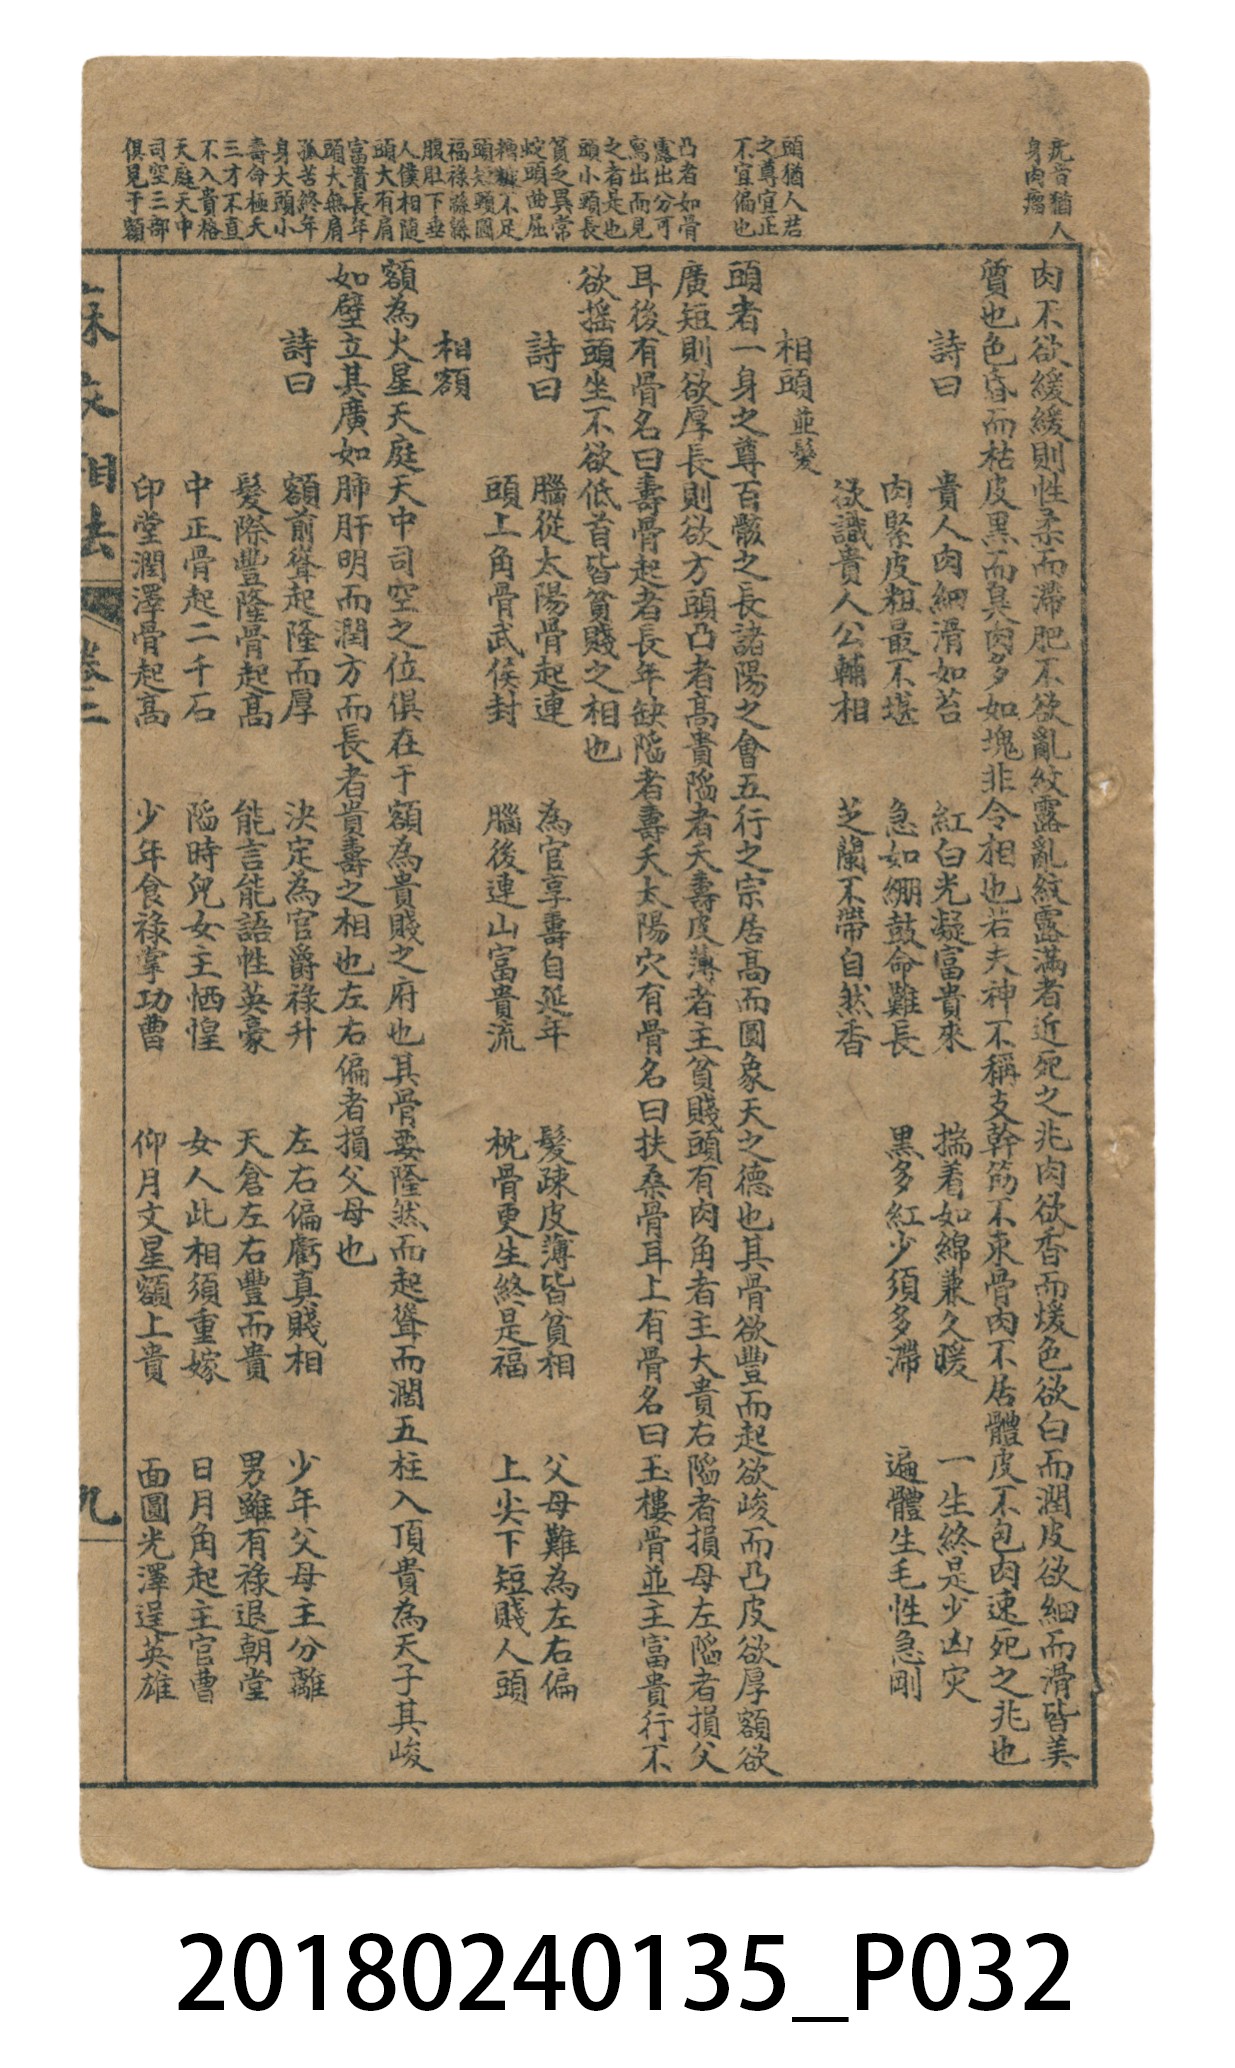 身肉瘤
頭猶人君
之尊宜正
不宜偏也
凸者如骨
處出分可
寓出而見
之者是也
頭小頸長
貧乏異常
蛇頭曲屈
糟糠不足
頭短頸圓
福祿綿綿
腹肚下垂
人僕相隨
頭大有肩
富貴長年
頭大無肩
孤苦終年
身大頭小
壽命極夭
三才不直
不入貴格
天庭天中
司空三部
俱見于額
肉不欲緩緩則性柔而滯肥不欲亂紋露亂紋露滿者近死之兆肉欲香而煖色欲白而潤皮欲細而滑皆美
質也色昏而枯皮黑而臭肉多如塊非令相也若夫神不稱支幹筋不束骨肉不居體皮不包肉速死之兆也
詩曰 貴人肉細滑如苔 紅白光凝富貴來 揣着如綿兼久暖 一生終是少凶灾
肉緊皮粗最不堪 急如綳鼓命難長 黑多紅少須多滯 遍體生毛性急剛
欲識貴人公輔相 芝蘭不帶自然香
相頭 並髮
頭者一身之尊百骸之長諸陽之會五行之宗居高而圓象天之德也其骨欲豐而起欲峻而凸皮欲厚額欲
廣短則欲厚長則欲方頭凸者高貴陷者夭壽皮薄者主貧賤頭有肉角者主大貴右陷者損母左陷者損父
耳後有骨名曰壽骨起者長年缺陷者壽夭太陽穴有骨名曰扶桑骨耳上有骨名曰玉樓骨並主富貴行不
欲搖頭坐不欲低首皆貧賤之相也
詩曰 腦從太陽骨起連 為官享壽自延年 髮疎皮薄皆貧相 父母難為左右偏
頭上角骨武侯封 腦後連山富貴流 枕骨更生終是福 上尖下短賤人頭
相額
額為火星天庭天中司空之位俱在于額為貴賤之府也其骨要隆然而起聳而濶五柱入頂貴為天子其峻
如壁立其廣如肺肝明而潤方而長者貴壽之相也左右偏者損父母也
詩曰 額前聳起隆而厚 決定為官爵祿升 左右偏虧真賤相 少年父母主分離
髮際豐隆骨起高 能言能語性英豪 天倉左右豐而貴 男雖有祿退朝堂
中正骨起二千石 陷時兒女主恓惶 女人此相須重嫁 日月角起主官曹
印堂潤澤骨起高 少年食祿掌功曹 仰月文星額上貴 面圓光澤逞英雄
麻衣相法 卷三 九
20180240135_P032